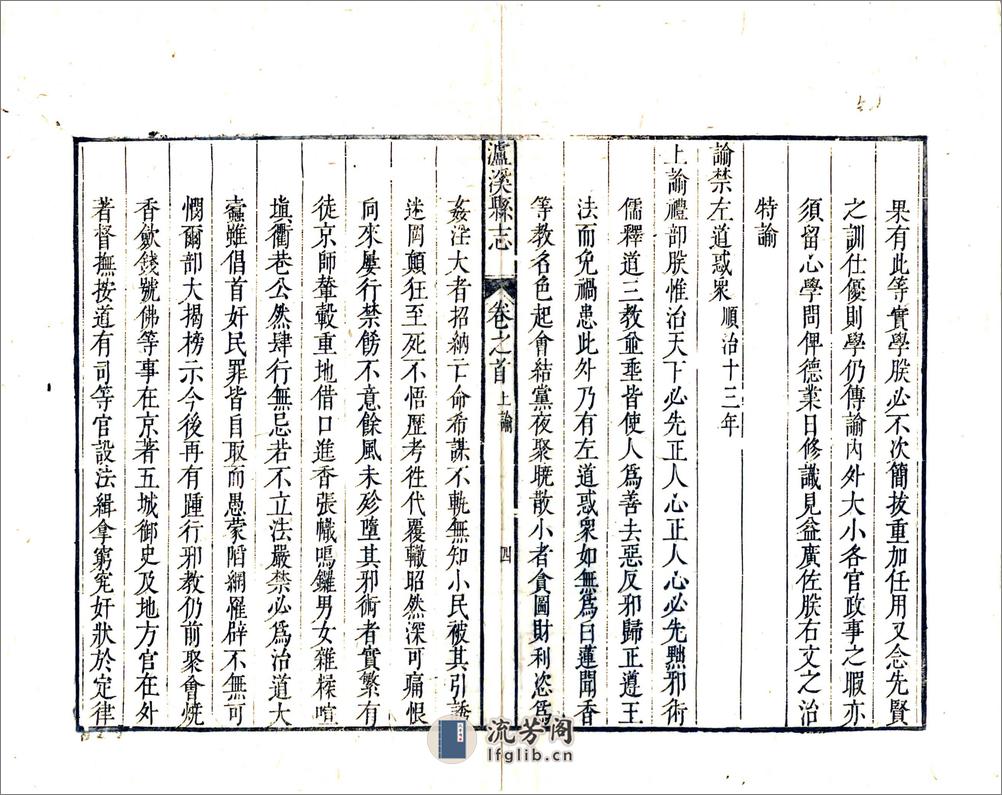 果有此等實學朕必不次簡拔重加任用又念先賢
之訓仕優則學仍傳諭內外大小各官政事之暇亦
須留心學問俾德業日修識見益廣佐朕右文之治
特諭
諭禁左道惑衆 順治十三年
上諭禮部朕惟治天下必先正人心正人心必先黜邪術
儒釋道三教並垂皆使人爲善去惡反邪歸正遵王
法而免禍患此外乃有左道惑衆如無爲白蓮聞香
等教名色起會結黨夜聚曉散小者貪圖財利恣爲
瀘溪縣志 卷之首 上諭 四
姦淫大者招納亡命希謀不軌無知小民被其引誘
迷罔顛狂至死不悟歷考徃代覆轍昭然深可痛恨
向來屢行禁飭不意餘風未殄墮其邪術者實繁有
徒京師輦轂重地借口進香張幟鳴鑼男女雜糅喧
塡衢巷公然肆行無忌若不立法嚴禁必爲治道大
蠹雖倡首奸民罪皆自取而愚蒙陷網罹辟不無可
憫爾部大揭榜示今後再有踵行邪教仍前聚會燒
香歛錢號佛等事在京著五城御史及地方官在外
著督撫按道有司等官設法緝拿窮究奸狀於定律
流芳阁
lfglib.cn